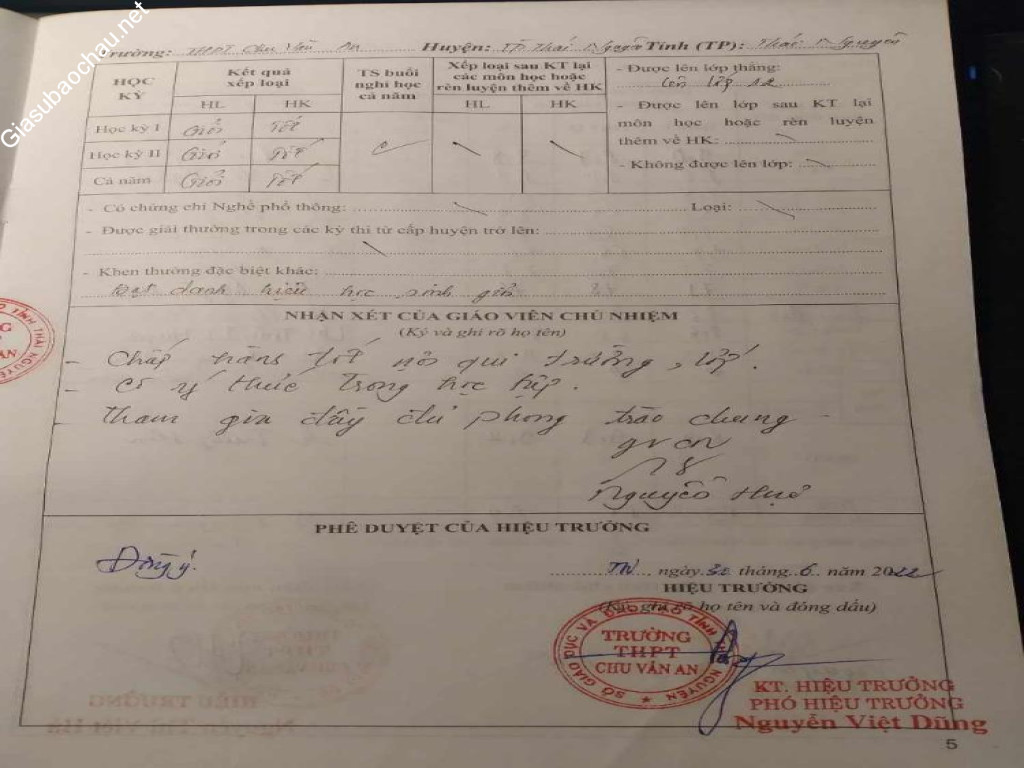 Giasubaochau.net
Trường: THPT Chu Văn An Huyện: TP Thái Nguyên Tỉnh (TP): Thái Nguyên
HỌC KỲ
Kết quả xếp loại
HL HK
TS buổi nghỉ học cả năm
Xếp loại sau KT lại các môn học hoặc rèn luyện thêm về HK
HL HK
Học kỳ I Giỏi Tốt
Học kỳ II Giỏi Tốt
Cả năm Giỏi Tốt
- Được lên lớp thẳng:
Lên lớp 12
- Được lên lớp sau KT lại
môn học hoặc rèn luyện
thêm về HK:
- Không được lên lớp:
- Có chứng chỉ Nghề phổ thông: Loại:
- Được giải thưởng trong các kỳ thi từ cấp huyện trở lên:
- Khen thưởng đặc biệt khác:
Đạt danh hiệu học sinh giỏi
NHẬN XÉT CỦA GIÁO VIÊN CHỦ NHIỆM
(Ký và ghi rõ họ tên)
- Chấp hành tốt nội qui trường, lớp.
- Có ý thức trong học tập.
- Tham gia đầy đủ phong trào chung
gvcn
Nguyễn Huệ
PHÊ DUYỆT CỦA HIỆU TRƯỞNG
Đồng ý.
TN, ngày tháng 6 năm 2022
HIỆU TRƯỞNG
(Ký, ghi rõ họ tên và đóng dấu)
SỞ GIÁO DỤC VÀ ĐÀO TẠO TỈNH THÁI NGUYÊN
TRƯỜNG
THPT
CHU VĂN AN
KT. HIỆU TRƯỞNG
PHÓ HIỆU TRƯỞNG
Nguyễn Việt Dũng
5